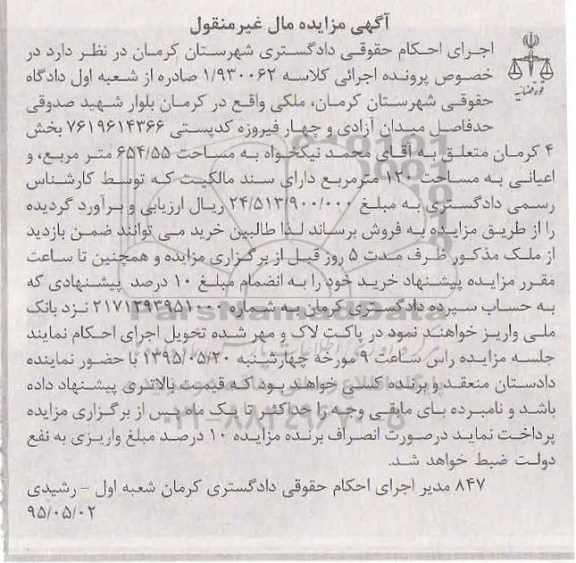 آگهی مزایده مال غیرمنقول
اجرای احکام حقوقی دادگستری شهرستان کرمان در نظر دارد در
خصوص پرونده اجرائی کلاسه ۱/۹۳۰۰۶۲ صادره از شعبه اول دادگاه
حقوقی شهرستان کرمان، ملکی واقع در کرمان بلوار شهید صدوقی
حدفاصل میدان آزادی و چهار فیروزه کدپستی ۷۶۱۹۶۱۴۳۶۶ بخش
۴ کرمان متعلق به آقای محمد نیکخواه به مساحت ۶۵۴/۵۵ متر مربع، و
اعیانی به مساحت ۱۲۰ مترمربع دارای سند مالکیت که توسط کارشناس
رسمی دادگستری به مبلغ ۲۴/۵۱۳/۹۰۰/۰۰۰ ریال ارزیابی و برآورد گردیده
را از طریق مزایده به فروش برساند لذا طالبین خرید می توانند ضمن بازدید
از ملک مذکور ظرف مدت ۵ روز قبل از برگزاری مزایده و همچنین تا ساعت
مقرر مزایده پیشنهاد خرید خود را به انضمام مبلغ ۱۰ درصد پیشنهادی که
به حساب سپرده دادگستری کرمان به شماره نزد بانک
ملی واریز خواهند نمود در پاکت لاک و مهر شده تحویل اجرای احکام نمایند
جلسه مزایده راس ساعت ۹ مورخه چهارشنبه ۱۳۹۵/۰۵/۲۰ با حضور نماینده
دادستان منعقد و برنده کسی خواهد بود که قیمت بالاتری پیشنهاد داده
باشد و نامبرده بای مابقی وجه را حداکثر تا یک ماه پس از برگزاری مزایده
پرداخت نماید درصورت انصراف برنده مزایده ۱۰ درصد مبلغ واریزی به نفع
دولت ضبط خواهد شد.
۸۴۷ مدیر اجرای احکام حقوقی دادگستری کرمان شعبه اول - رشیدی
۹۵/۰۵/۰۲
قوه قضائیه
ParsNamadData
۰۲۱-۸۸۳۴۹۶۷۰-۵